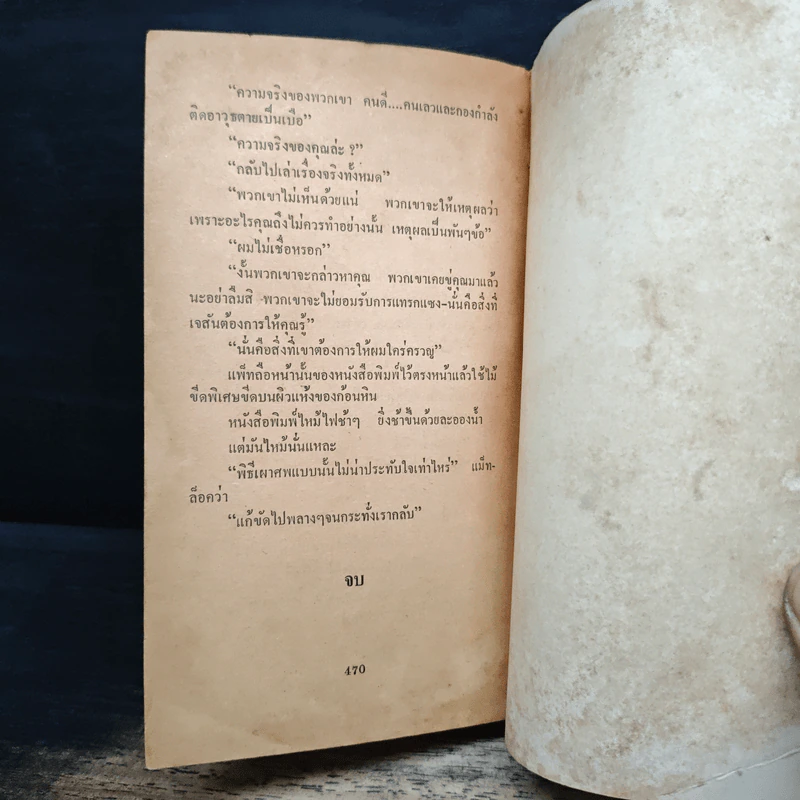 “ความจริงของพวกเขา คนดี....คนเลวและกองกำลัง
ติดอาวุธตายเป็นเบือ”
“ความจริงของคุณล่ะ ?”
“กลับไปเล่าเรื่องจริงทั้งหมด”
“พวกเขาไม่เห็นด้วยแน่ พวกเขาจะให้เหตุผลว่า
เพราะอะไรคุณถึงไม่ควรทำอย่างนั้น เหตุผลเป็นพันๆข้อ”
“ผมไม่เชื่อหรอก”
“งั้นพวกเขาจะกล่าวหาคุณ พวกเขาเคยขู่คุณมาแล้ว
นะอย่าลืมสิ พวกเขาจะไม่ยอมรับการแทรกแซง-นั่นคือสิ่งที่
เจสันต้องการให้คุณรู้”
“นั่นคือสิ่งที่เขาต้องการให้ผมใคร่ครวญ”
แพ็ทถือหน้านั้นของหนังสือพิมพ์ไว้ตรงหน้าแล้วใช้ไม้
ขีดพิเศษขีดบนผิวแห้งของก้อนหิน
หนังสือพิมพ์ไหม้ไฟช้าๆ ยิ่งช้าขึ้นด้วยละอองน้ำ
แต่มันไหม้นั่นแหละ
“พิธีเผาศพแบบนั้นไม่น่าประทับใจเท่าไหร่” แม็ท-
ล็อคว่า
“แก้ขัดไปพลางๆจนกระทั่งเรากลับ”
จบ
470